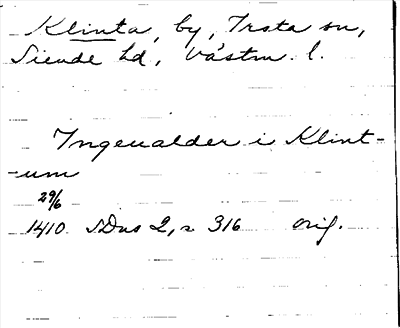 Klinta, by, Irsta sn,
Siende hd, Västm. l.
Ingeualder i Klint-
-um
29/6
1410. SDns 2, s 316 orig.